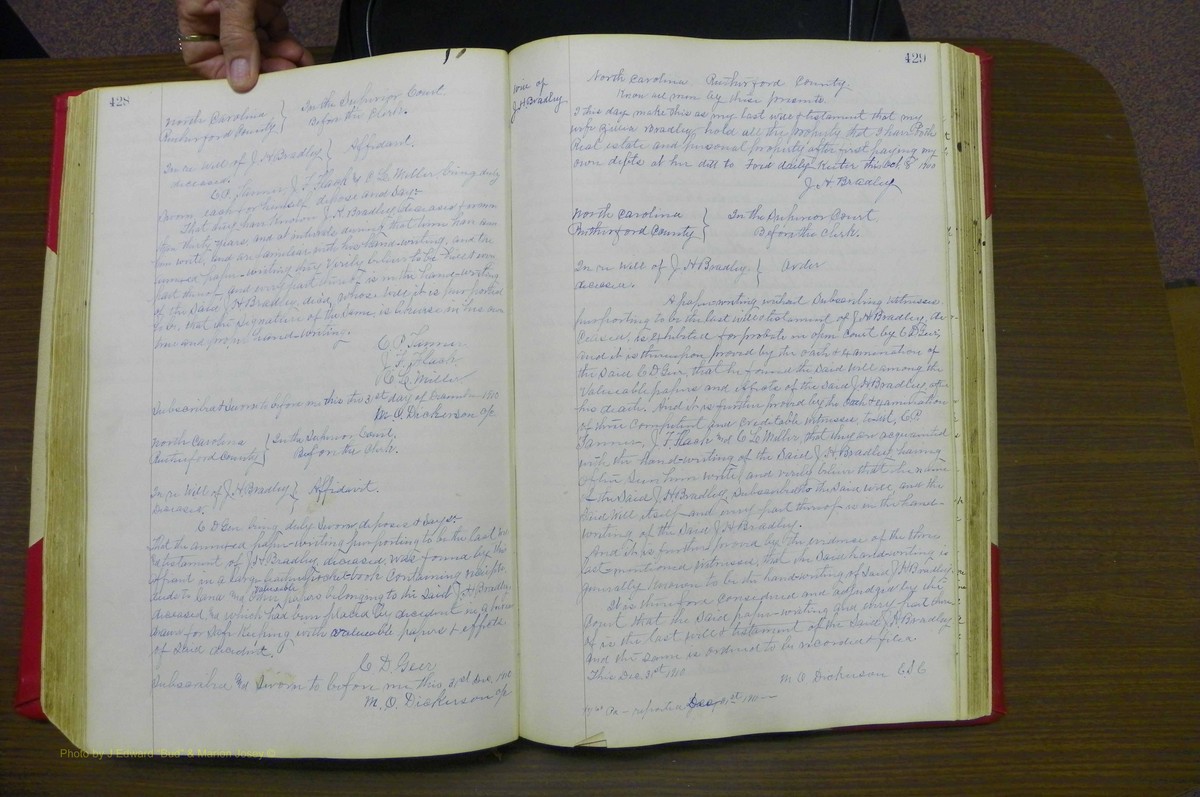 428
North Carolina } In the Superior Court
Rutherford County } Before the Clerk.
In re Will of J. H. Bradley } Affidavit.
deceased.
J. F. Flack & C. L. Miller being duly
sworn each for himself depose and say:
That they have known J. H. Bradley, deceased,
thirty years, and at intervals during that time have seen
him write, and are familiar with his hand-writing, and
paper-writing they verily believe to be
part thereof and every part thereof is in the hand-writing
of the said J. H. Bradley, dec'd, whose will it is purported
to be. That the signature of the same, is likewise in his own
true and proper hand-writing.
J. F. Flack
C. L. Miller
Subscribed & sworn to before me this the 31st day of
M. O. Dickerson
North Carolina } In the Superior Court,
Rutherford County } Before the Clerk.
In re Will of J. H. Bradley } Affidavit.
deceased.
C D Geer being duly sworn deposes & says:
that the annexed paper-writing purporting to be the last will
& testament of J. H. Bradley, deceased, was found by this
affiant in a large leather pocket-book containing
valuable
papers belonging to the said J. H. Bradley,
deceased, & which had been placed by decedent in a
for safe keeping with valuable papers & effects
of said decedent.
C. D. Geer
Subscribed and sworn to before me this, 31st Dec.
M. O. Dickerson
429
Will of
J. H. Bradley
North Carolina Rutherford County
Know all men by these presents.
I this day make this as my last will & testament that my
wife Bradley, hold all the property that I have Both
Real estate and personal property after first paying my
own depts at her
J. H. Bradley
North Carolina } In the Superior Court
Rutherford County } Before the Clerk.
In re Will of J. H. Bradley } Order
deceased.
A paper-writing without subscribing witnesses
purporting to be the last will & testament of J. H. Bradley, de-
ceased, is exhibited for probate in open Court by C D Geer,
and it is thereupon proved by the oath & examination of
the said C D Geer, that he found the said will among the
valuable papers and effects of the said J. H. Bradley, after
his death. And it is further proved by the oath & examination
of three competent and creditable witnesses, to wit, C. P.
Tanner, J. F. Flack and C. L. Miller, that they are acquainted
with the hand-writing of the said J. H. Bradley, having
often seen him write, and verily believe that the name
of the said J. H. Bradley, subscribed to the said will, and the
said will itself and every part thereof is in the hand-
writing of the said J. H. Bradley.
And it is further proved by the evidence of the three
last mentioned witnesses, that the said hand-writing is
generally known to be the handwriting of said J. H. Bradley.
It is therefore considered and adjudged by the
Court that the said paper-writing and every part there-
of is the last will & testament of the said J. H. Bradley
and the same is ordered to be recorded & filed.
This Dec. 31st
M. O. Dickerson C S C
Photo by J Edward "Bud" & Marion Josey ©